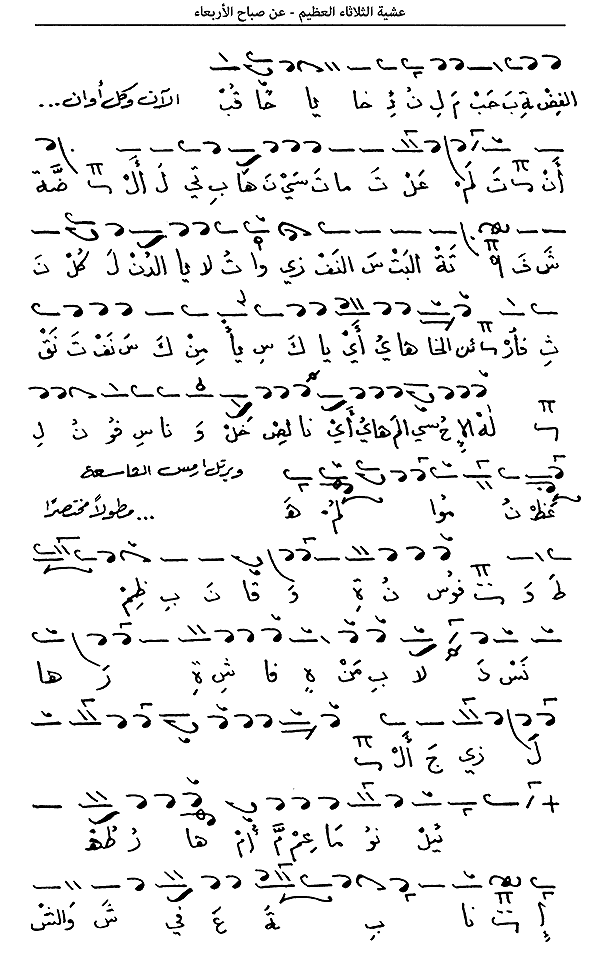 عشية الثلاثاء العظيم - عن صباح الأربعاء
الفِضْ ةِ بَ حَبْ مَ لِ نُ ئِ خا يا قُبْ الآن وكل أوان...
أَنْ تَ لَمْ عَلْ تَ ما تَ سَيْ نَ ها بِ تي لَ أَلْ ضَّة
شَ فَ تَةْ البَتْ سَ النَفْ زي وا تُ لا يا الدُنْ لَ كُلْ نَ
ثِ الخا هايُ أَيْ يا كَ سِ يأ مِنْ كَ سَ نَفْ تَ نَقْ
لَهْ الإِ حُ سي المَ هايُ أَيْ نا لِصْ خَلْ وَ ناسِ فو نُ لِ
ويرتل ارمس التاسعة
عَظْ نُ مُوا لُمْ هَ ...مطولاً مختصرًا
طَ دَ فوس نُ ةِ دَ قا نَ بِ ظِمْ
نَسْ دَ لا بِ مَنْ ةٍ فا شِ ةِ رَ ها
لَ زي جَ أَلْ
نو مَا عِمْ مَّ أُمْ ها رُ طُهْ
نا بِ ةَ عَ في شَ وَالشْ